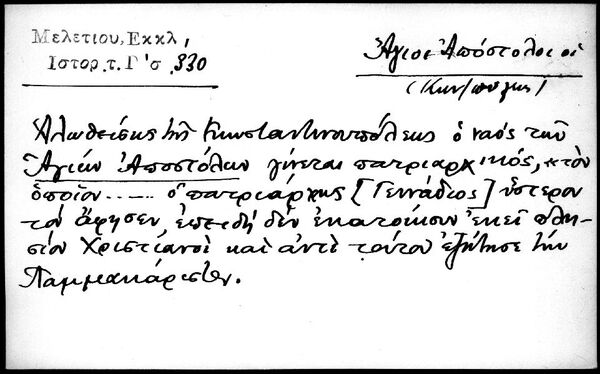 Μελετίου, Εκκλ,
Ιστορ. τ. Γ' σ. 330
Ἅγιοι Ἀπόστολοι οἱ
(Κων/πόλεως)
Ἁλωθείσης τῆς Κωνσταντινουπόλεως ὁ ναός τῶν
Ἁγίων Ἀποστόλων γίνεται πατριαρχικός, "τὸν
ὁποῖον ..... ὁ πατριάρχης [Γεννάδιος] ὕστερον
τὸν ἄφησεν, ἐπειδή δὲν ἐκατοίκουν ἐκεῖ πλη-
σίον Χριστιανοὶ καὶ ἀντὶ τούτου ἐζήτησε τήν
Παμμακάριστον.